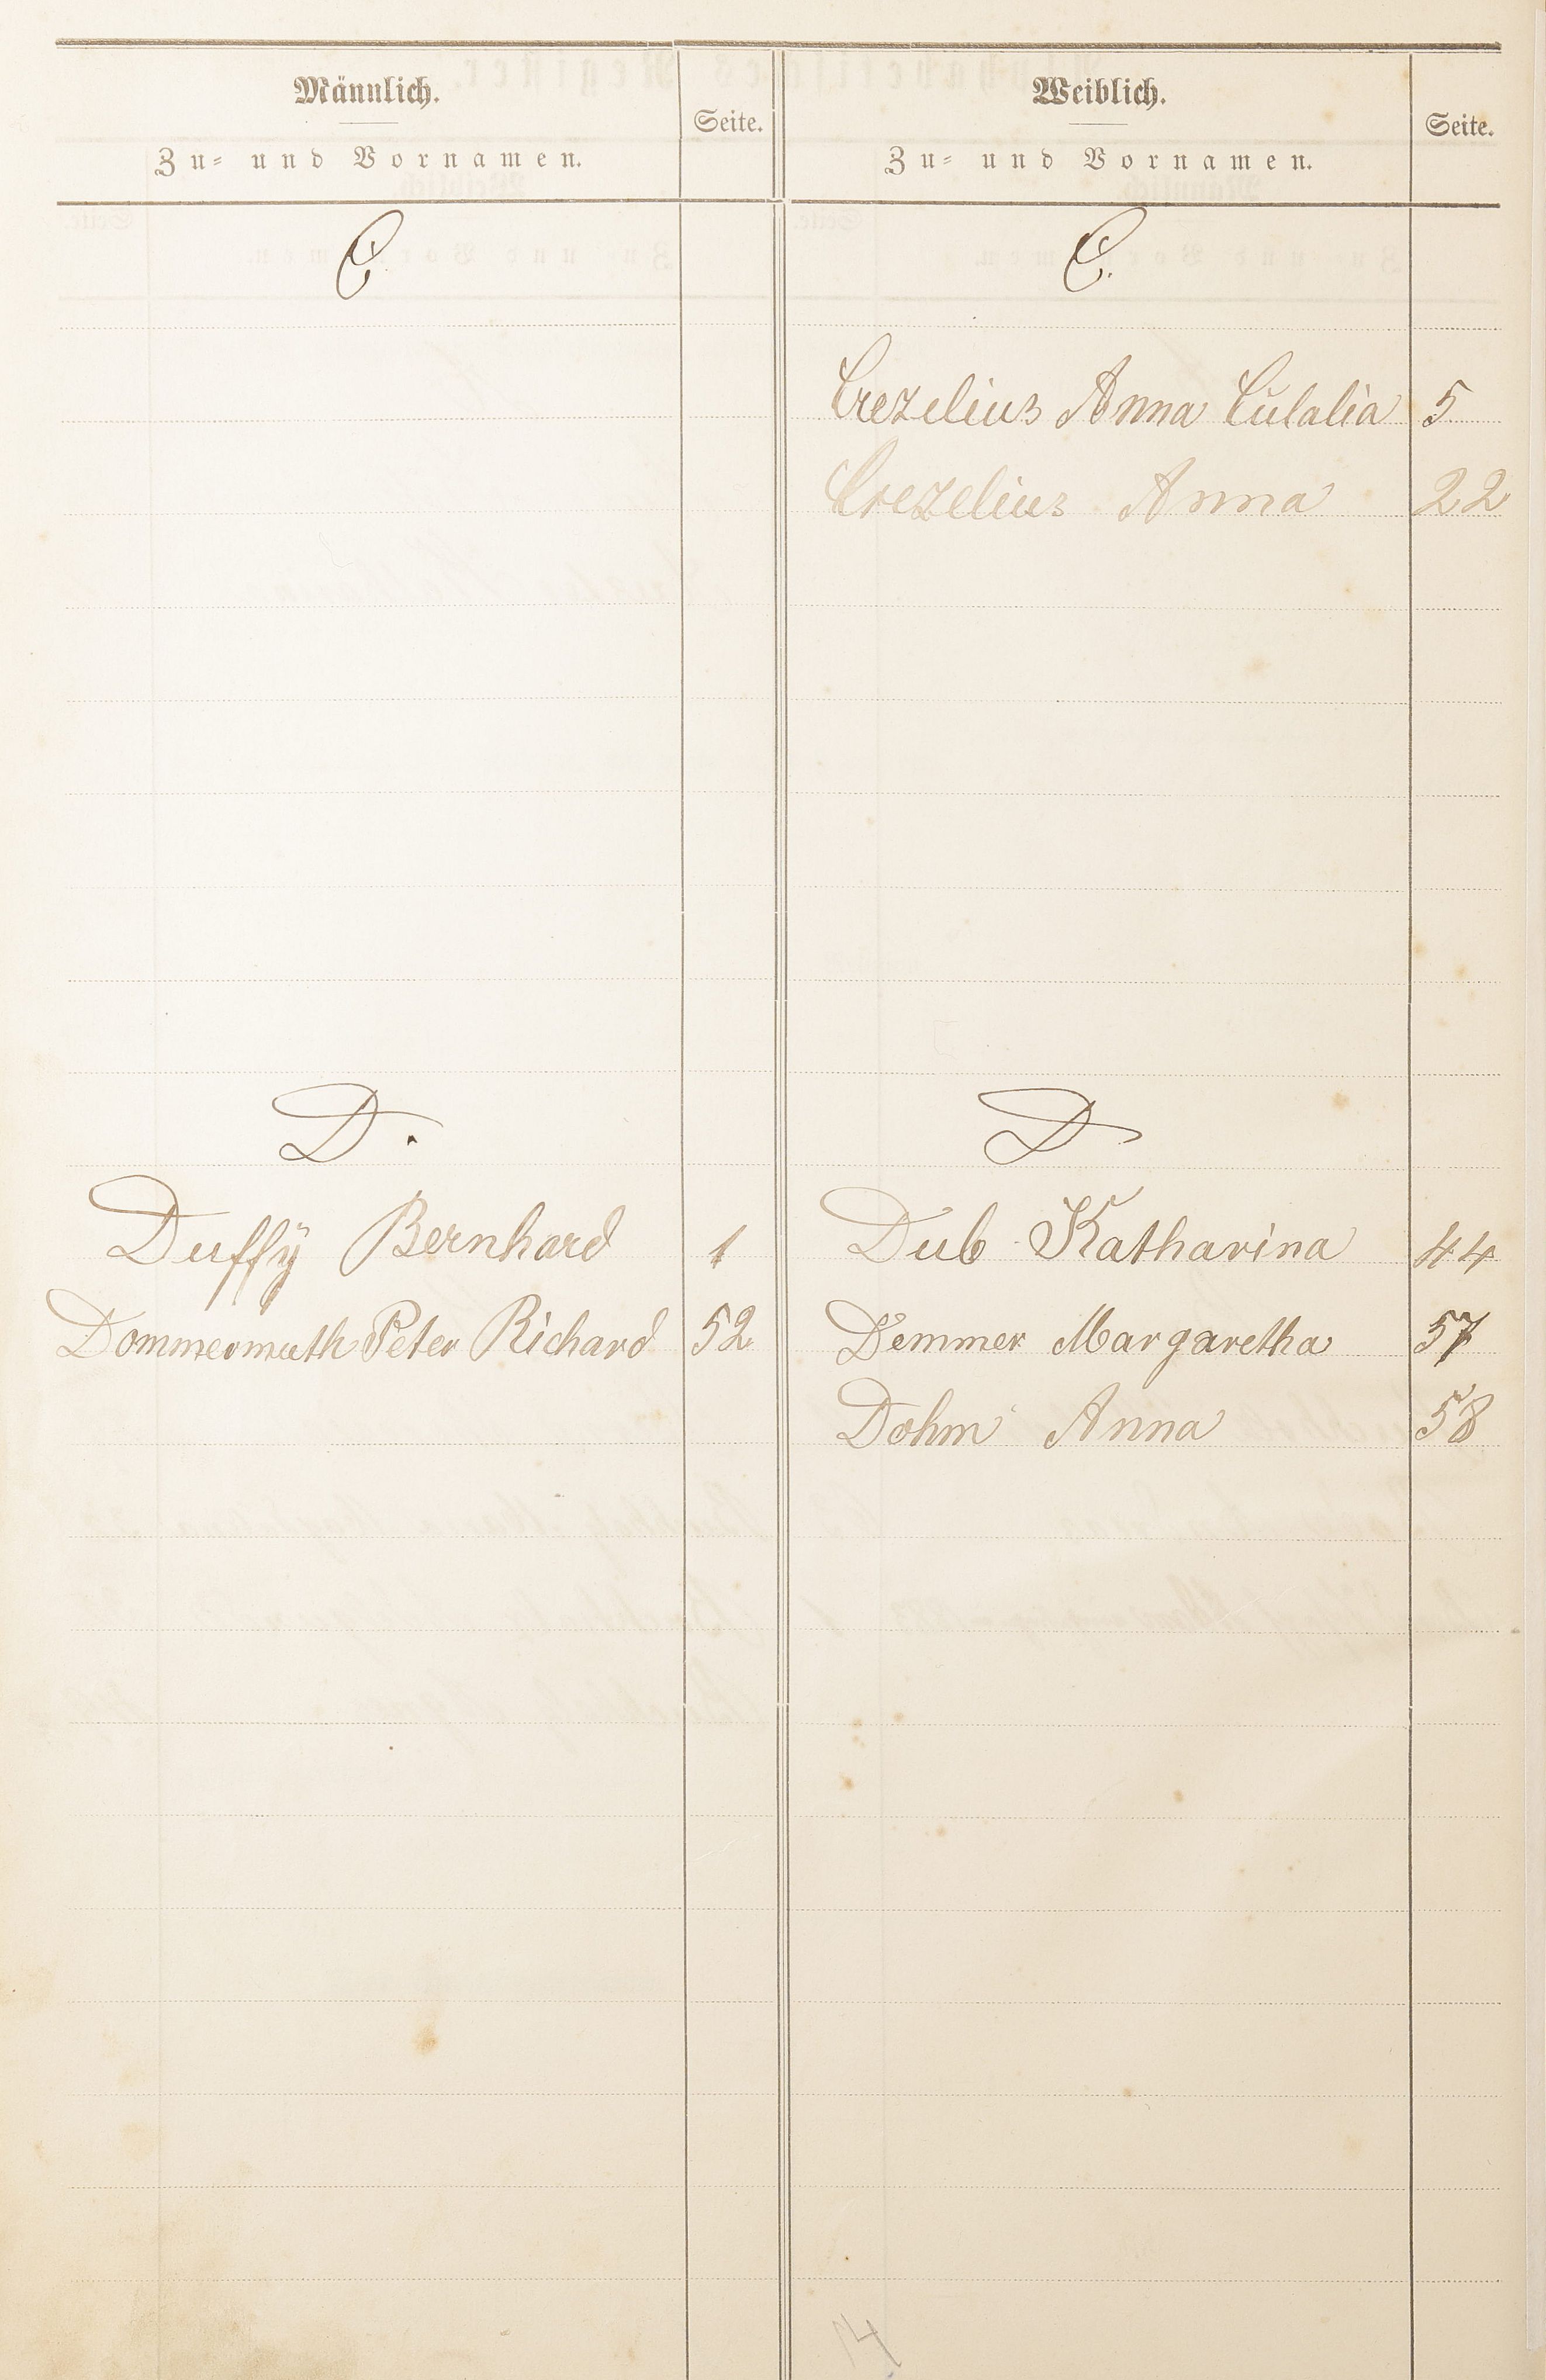 Männlich.
Zu- und Vornamen.
Seite.
Weiblich.
Zu- und Vornamen.
Seite.
C
C.
Crezelius Anna Eulalia 5
Crezelius Anna 22
D.
D
Duffÿ Bernhard 1
Dub Katharina 44
Dommermuth Peter Richard 52
Demmer Margaretha 57
Dohm Anna 58